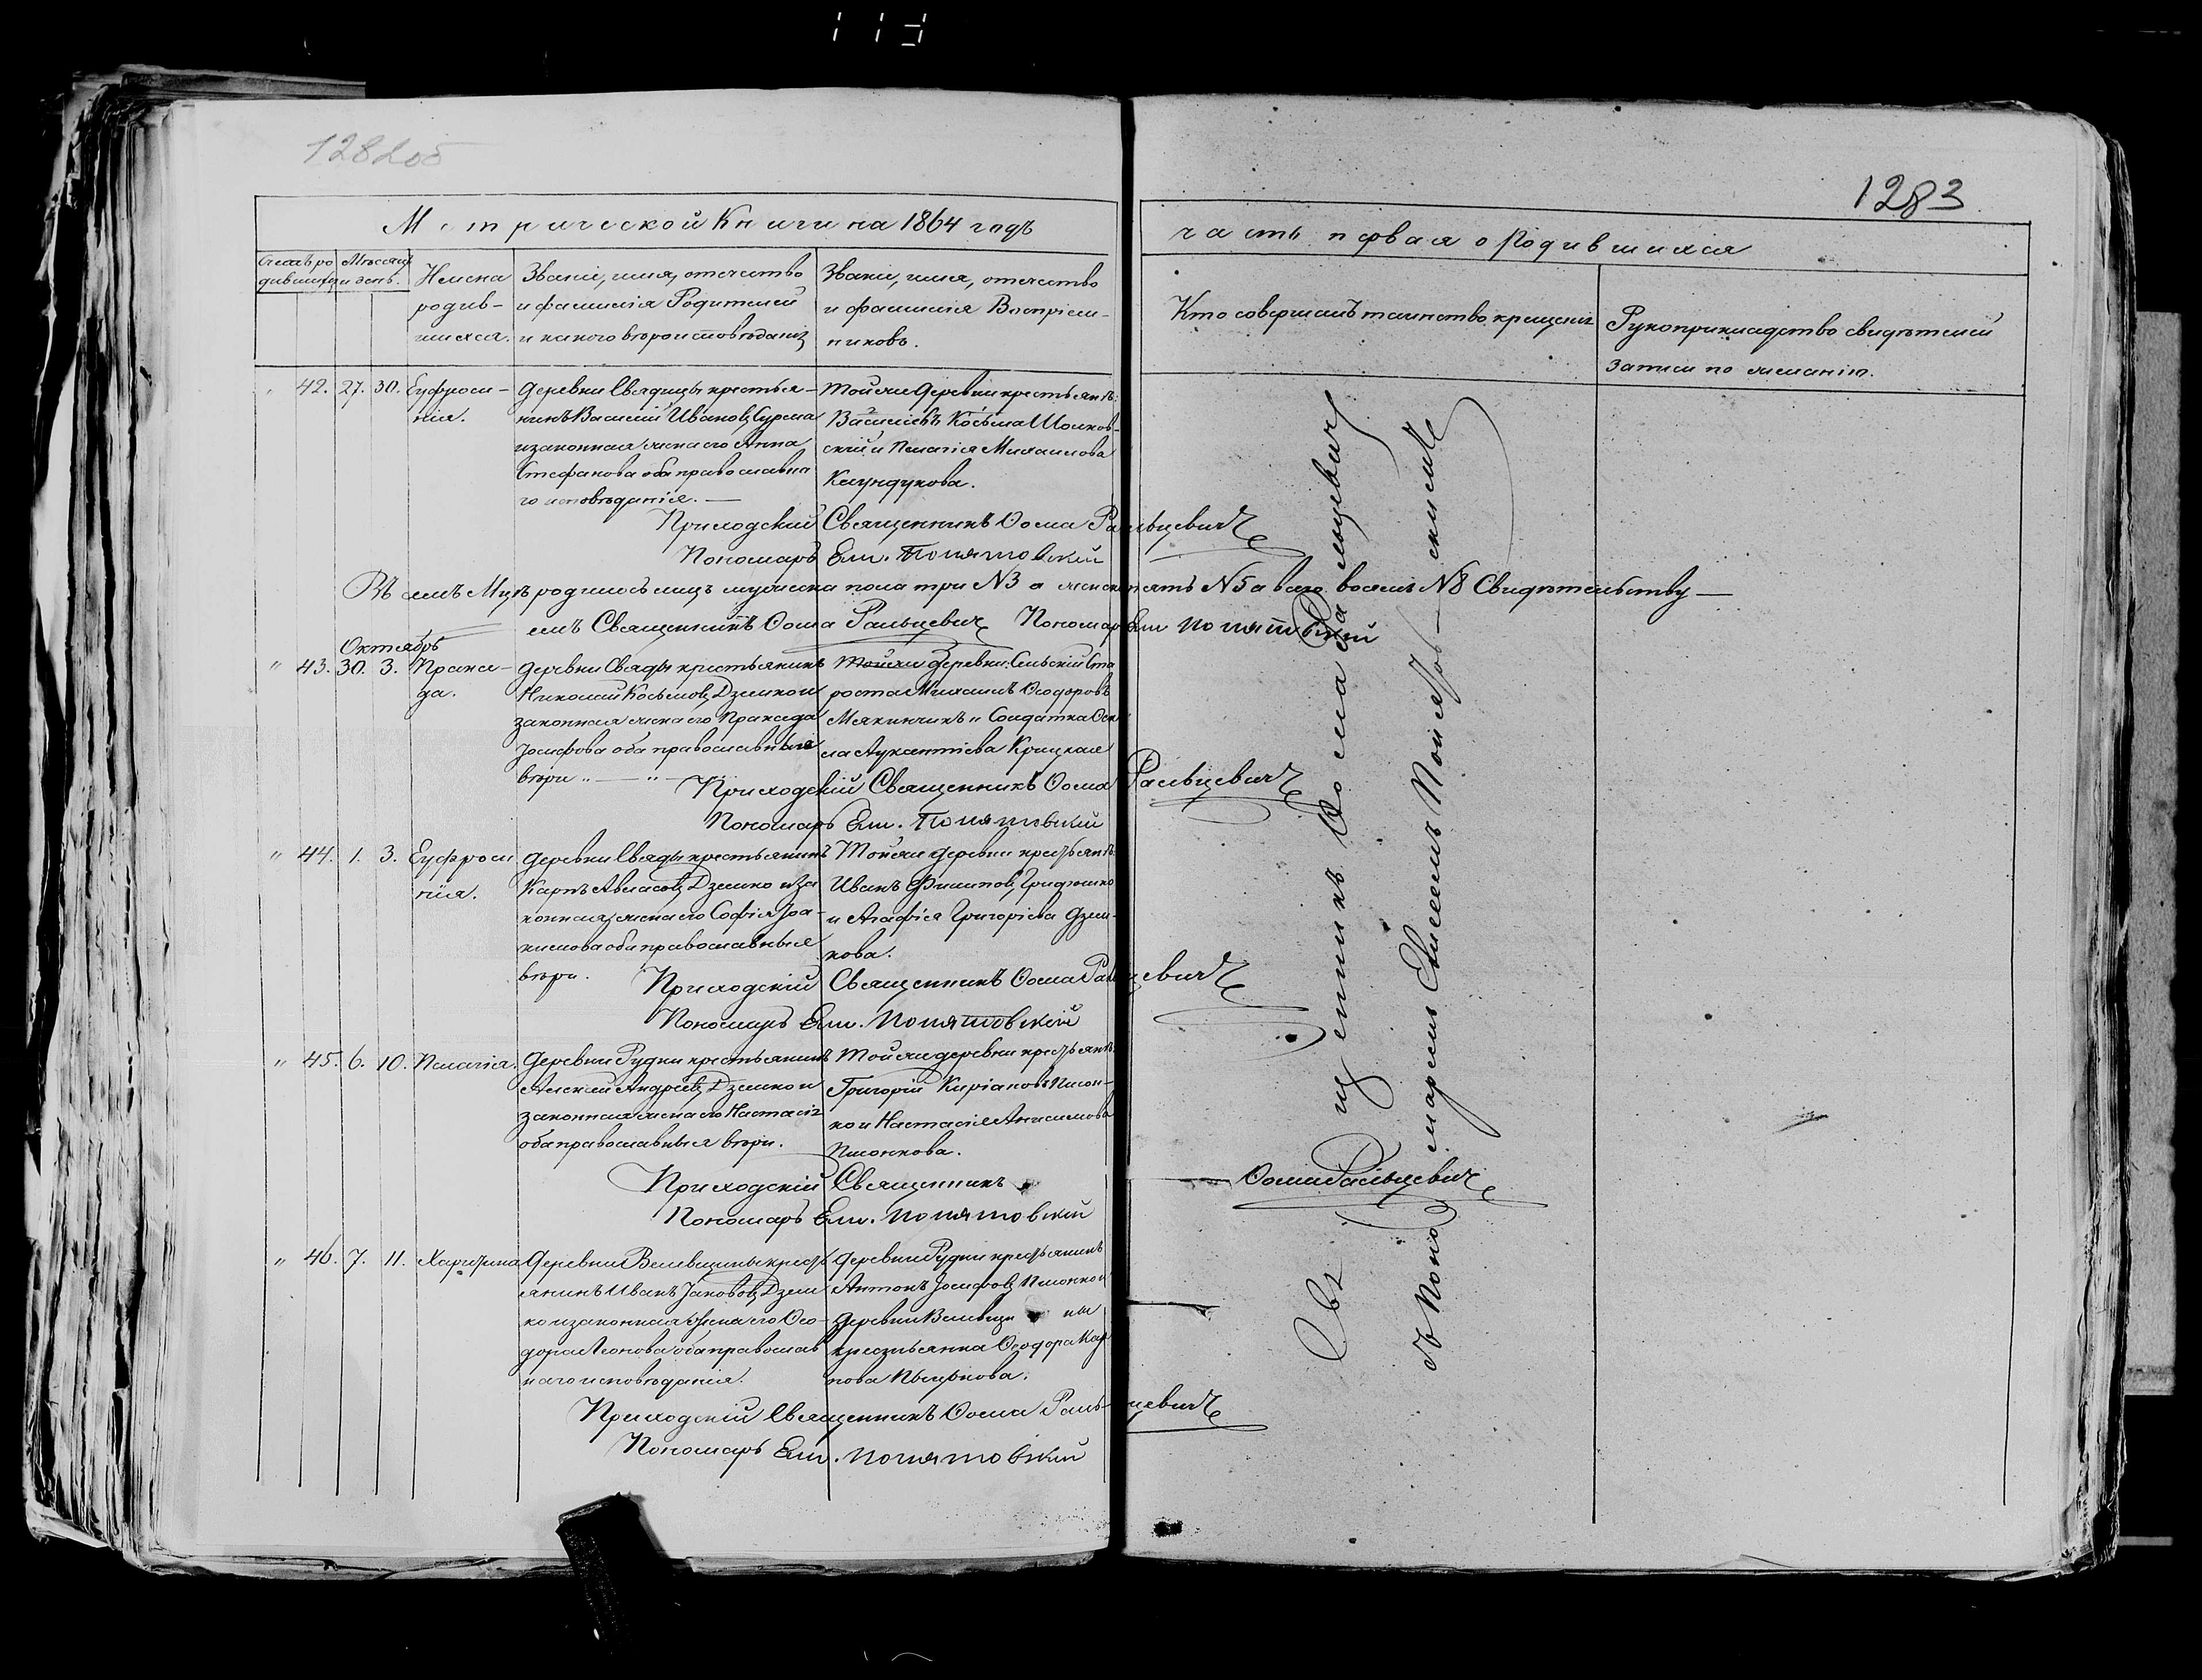 113
128 2об
1283
Метрической Книги на 1864 годъ
часть первая о Родившихся
Счетъ ро Мѣсяцъ
дившихся и день.
Имена
родив-
шихся.
Званіе, имя, отчество
и фамилія Родителей
и какого вѣроисповѣданія
Званіе, имя, отчество
и фамилія Воспріем-
никовъ.
Кто совершалъ таинство крещенія
Рукоприкладство свидѣтелей
записи по желанію.
42. 27. 30. Еуфроси-
нія.
Деревни Свядицы крестья-
нинъ Василій Ивановъ Сурма
и законная жена его Анна
Стефанова оба православна
го исповѣданія. —
Той же деревни крестьянинъ
Василій Косьма
и Пелагія Михаилова
Клундукова.
Приходскій Священникъ Ѳома Ральцевичъ
Пономарь Ем. Понятовскій
Въ семъ Мцѣ родилось лицъ мужеска пола три N3 а женска пять N5 а всего восемь N8 Свидѣтельству —
емъ Священникъ Ѳома Ральцевичъ Пономарь Ем Понятовскій
Октябрь
" 43. 30. 3. Пракси-
да.
Деревни Свяды крестьянинъ
Николай Косьмовъ Дземко и
законная жена его Праксида
Іосифова оба православныя
вѣры " — " —
Той же деревни Сельскій Ста
роста Михаилъ Ѳеодоровъ
Мякинчикъ и Солдатка
Крицкая
Приходскій Священникъ Ѳома Ральцевичъ
Пономарь Ем. Понятовскій
" 44. 1. 3. Еуфроси
нія.
Деревни Свяды крестьянинъ
Карпъ Авласовъ Дземко и за
конная жена его Софія Іоа-
кимова оба православныя
вѣры.
Той же деревни крестьянинъ
Иванъ Филиповъ Гридюшко
и Агафія Григоріева Дзем-
кова.
Приходскій Священникъ Ѳома Ральцевичъ
Пономарь Ем. Понятовскій
" 45. 6. 10. Пелагія.
Деревни Рудни крестьянинъ
Алексѣй Андреевъ Дземко и
законная жена его Настасія
оба православныя вѣры.
Той же деревни крестьянинъ
Григорій Киріановъ Пшон-
ко и Настасія Анисимова
Пшонкова.
Приходскій Священникъ — Ѳома Ральцевичъ
Пономарь Ем. Понятовскій
" 46. 7. 11. Харитина
Деревни Велевщины кресть
янинъ Иванъ Іакововъ Дзем
ко и законная жена его Ѳео-
дора Леонова оба православ
наго исповѣданія.
Деревни Рудни крестьянинъ
Антонъ Іосифовъ Пшонко и
деревни Велевщины
крестьянка Ѳеодора Кар
пова
Приходскій Священникъ Ѳома Ральцевичъ
Пономарь Ем. Понятовскій
Священникъ Ѳома Ральцевичъ
съ Пономаремъ Емиліемъ Понятов — скимъ